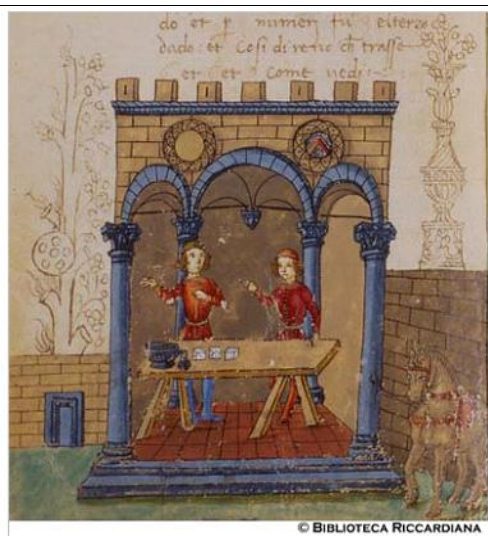 do et p numer fu elterzo
dado et Cosi di retto ch trasse
et et come uedi
© BIBLIOTECA RICCARDIANA